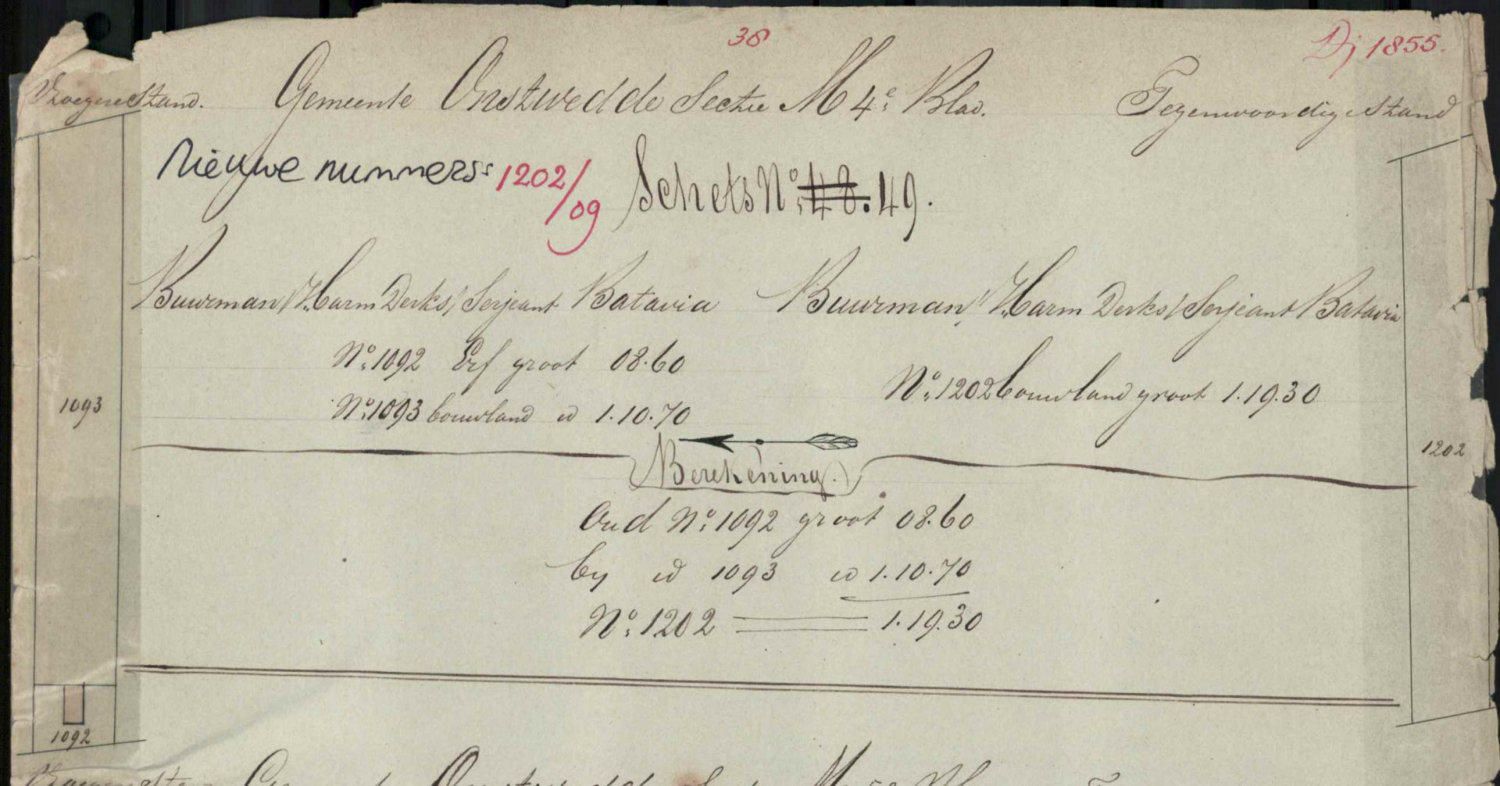 38
Dj 1855.
Vroegere Stand. Gemeente Onstwedde Sectie M 4e Blad. Tegenwoordige Stand
Nieuwe nummers: 1202/09 Schets No. 48. 49.
Buurman / Harm Derks / Serjeant Batavia
Buurman / Harm Derks / Serjeant Batavia
No. 1092 Erf groot 08.60
No. 1093 bouwland id 1.10.70
No. 1202 bouwland groot 1.19.30
1093
1202
Berekening.
Oud No. 1092 groot 08.60
by id 1093 id 1.10.70
No. 1202 1.19.30
1092